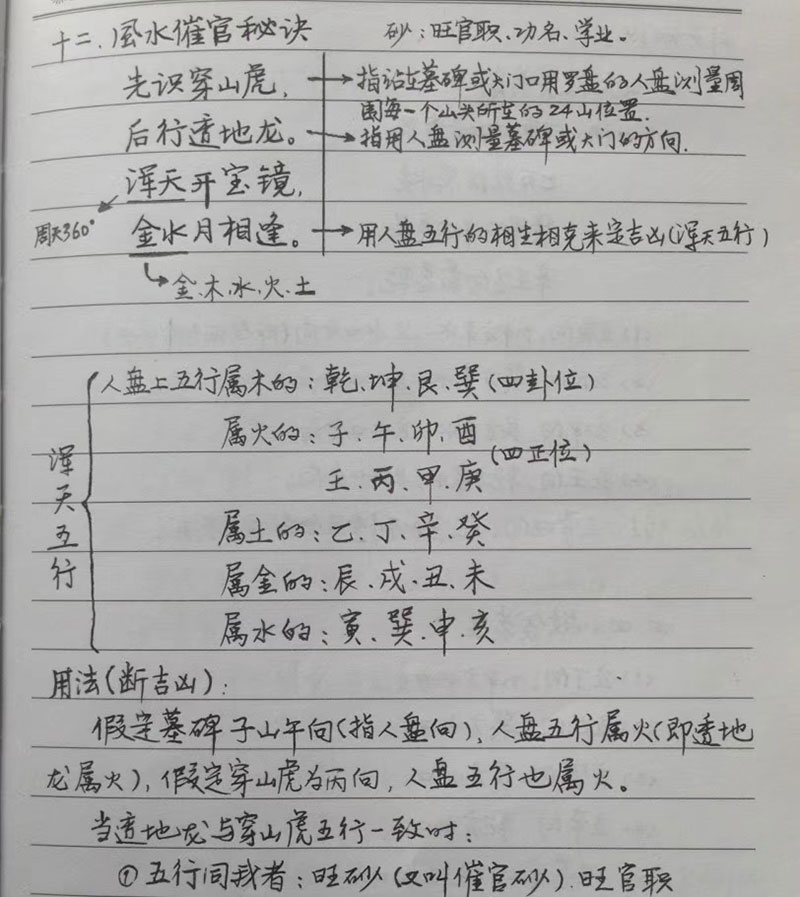 十二.风水催官秘诀 砂:旺官职、功名、学业。
先识穿山虎, → 指站在墓碑或大门口用罗盘的人盘测量周
围每一个山头所在的24山位置.
后行透地龙。 → 指用人盘测量墓碑或大门的方向.
浑天开宝镜,
周天360°
金水月相逢。 → 用人盘五行的相生相克来定吉凶(浑天五行)
金.木.水.火.土
浑天五行
人盘上五行属木的:乾、坤.艮.巽(四卦位)
属火的:子.午.卯.酉
(四正位)
壬.丙.甲.庚
属土的:乙.丁.辛.癸
属金的:辰.戌.丑.未
属水的:寅.巽.申.亥
用法(断吉凶):
假定墓碑子山午向(指人盘向),人盘五行属火(即透地
龙属火),假定穿山虎为丙向,人盘五行也属火。
当透地龙与穿山虎五行一致时:
①五行同我者:旺砂(又叫催官砂).旺官职